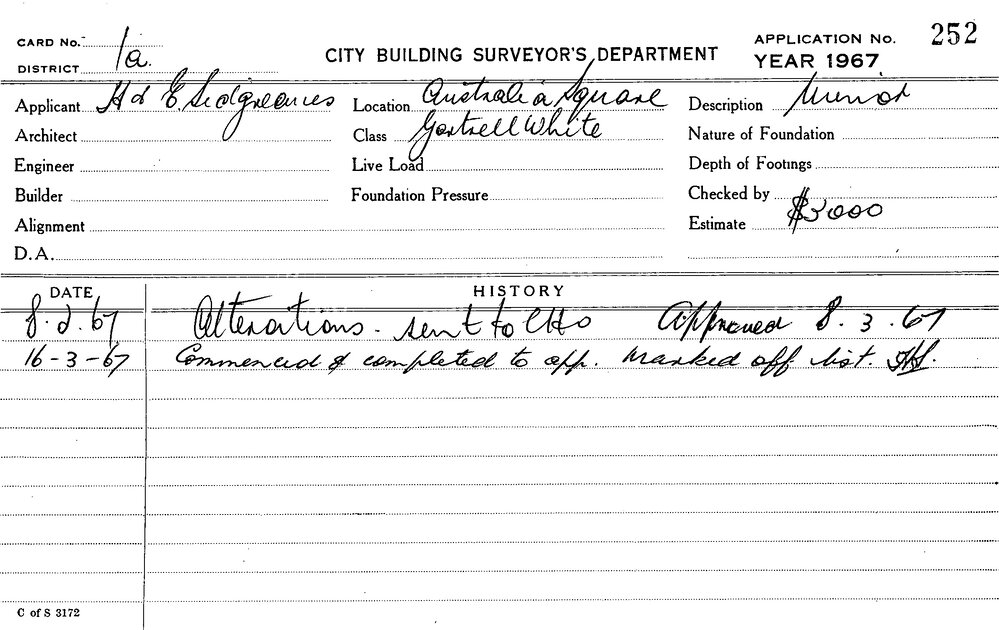 CARD No. 1a.
DISTRICT
CITY BUILDING SURVEYOR'S DEPARTMENT
APPLICATION No. 252
YEAR 1967
Applicant H d E. Sidgreaves Location Australia Square Description Minor
Architect Class Gartrell White Nature of Foundation
Engineer Live Load Depth of Footings
Builder Foundation Pressure Checked by
Alignment Estimate $3000
D.A.
DATE HISTORY
8.2.67 Alterations. sent to CHO Approved 8.3.67
16-3-67 Commenced & completed to app. Marked off list.
C of S 3172